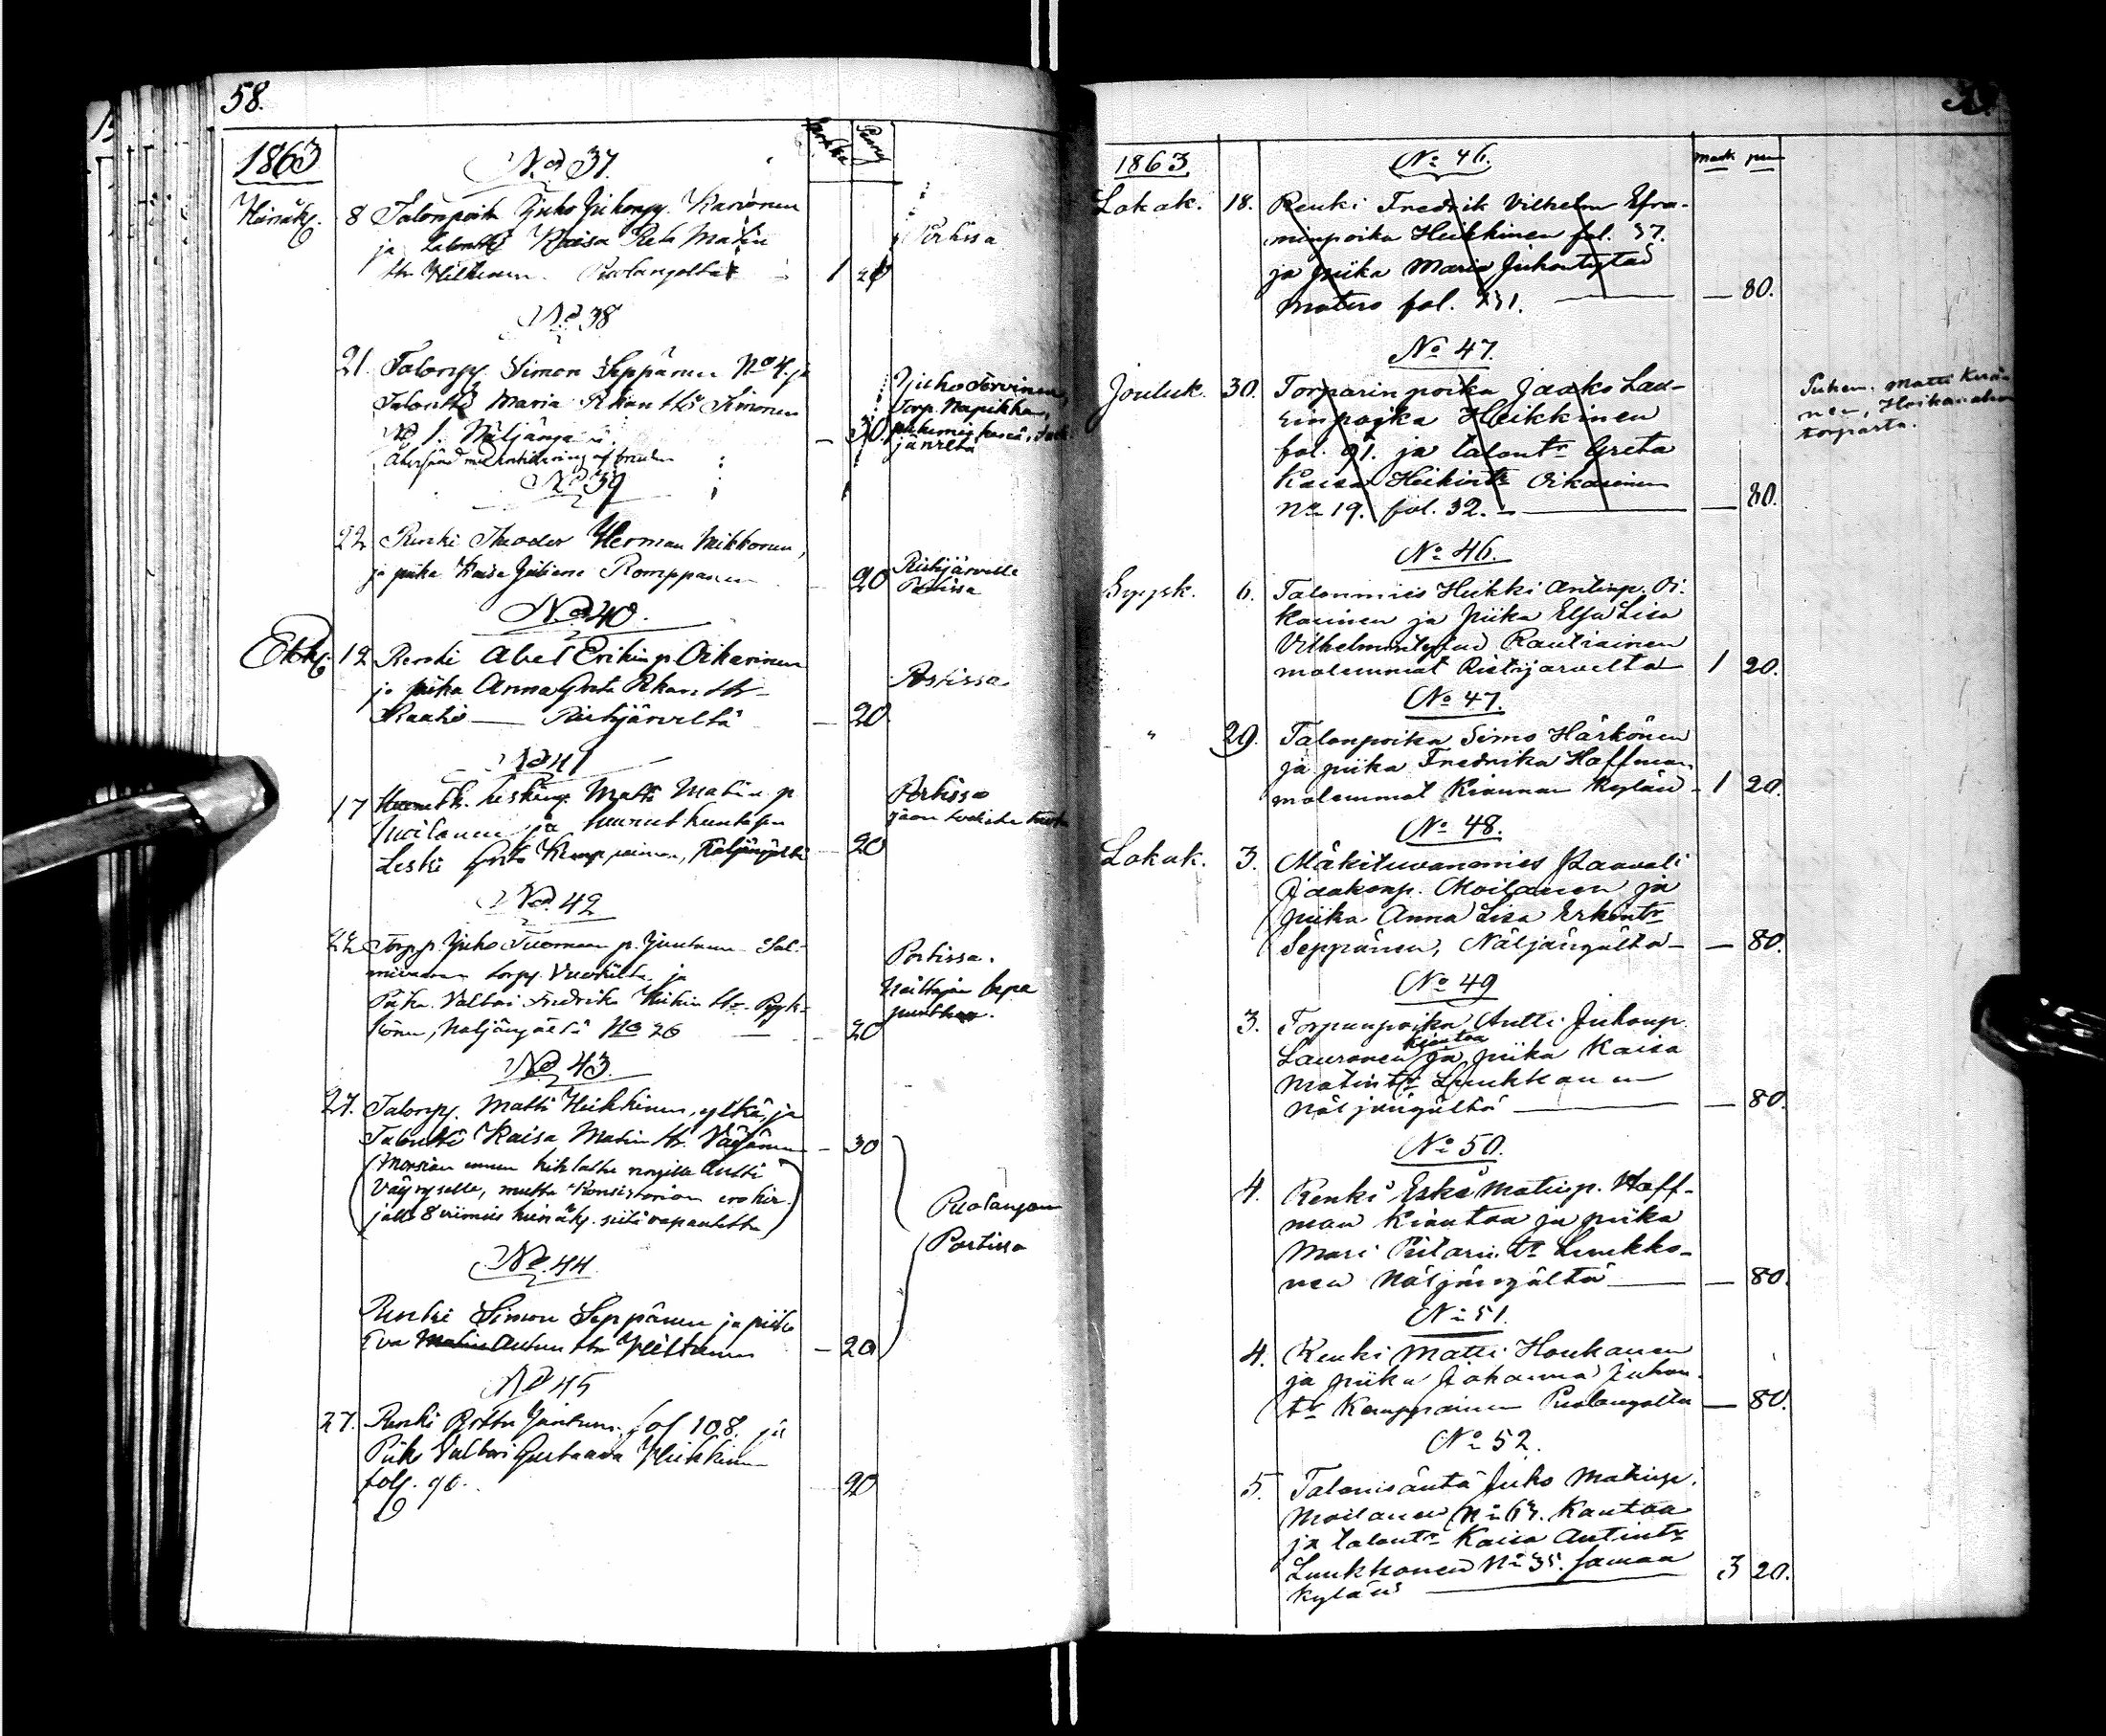 58.
1863
No 37.
Heinäk. 8 Talonpoika Juho Juhonp. Karvonen
ja talontr Kaisa Reta Matin
ttr Heikkinen. Puolangolta 1 20
No 38
21. Talonp. Simon Seppänen No 4. ja
Talonttr Maria Pekan ttr Simonen
No 1. Näljänga
Juho Törvinen,
Torp. Napikka,
- 30.
No 39
22 Renki Theodor Herman Mikkonen,
ja piika Kaisa Juliana Romppanen 20
Ristijärvelle
Portissa
No 40.
Elok. 12 Renki Abel Erikinp. Oikarinen
ja piika Anna Greta Pekan ttr
Rautio — Ristijärveltä — 20
Portissa
No 41
17 leskimies Matti Matin p
Moilanen ja
Leski Greta Kemppainen, Näljängältä 20
Portissa
No. 42
22 Torp.p. Juho Tuomaan p. Juntunen Sal-
mivaaran torp. Vuokista ja
Piika Valbori Fredrika Heikin ttr Pyyk-
könen, Näljängältä No 26 — 20
Portissa.
No. 43.
27. Talonp. Matti Heikkinen, ylkä, ja
Talontti Kaisa Matin ttr Väisänen - 30
(Morsian ennen kihlattu rengille Antti
Väyryselle, mutta Konsistorion erokir-
jalla 8 viimeis heinäk. siitä vapautettu)
Puolangan
Portissa
No. 44
Renki Simon Seppänen ja piika
Eva Matin Antin ttr Heikkinen - 20
No 45
27. Renki Juntunen fol 108. ja
Piika Valbori Gustaava Heikkinen
fol. 96. 20
1863.
No 46.
Mark pen
Lokak. 18. Renki Fredrik Vilhelm Efra-
minpoika Heikkinen fol. 37.
ja piika Maria Juhontytär
Matero fol. 231. — — 80.
No 47.
Jouluk. 30. Torparin poika Jaako Lau-
rinpoika Heikkinen
fol. 91. ja talontr Greta
Kaisa Heikintr Oikarinen
No 19. fol. 32. — — 80.
Puhem. Matti Kerä-
nen, Hoikanahon
torparta.
No 46.
Syysk. 6. Talonmies Heikki Antinp. Oi-
karinen ja piika Elsa Lisa
Vilhelmintytär Rautiainen
molemmat Ristijärveltä 1 20.
No 47.
" 29. Talonpoika Simo Härkönen
ja piika Fredrika Hoffman
molemmat Kiannan kylän - 1 20.
No 48.
Lokak. 3. Mäkituvanmies Paavali
Jaakonp. Moilanen ja
piika Anna Lisa Erkintr
Seppänen, Näljängältä — — 80.
No 49
3. Torpanpoika Antti Juhonp.
Kiantaa
Lauronen ja piika Kaisa
Matintr Luukkonen
Näljängältä — — 80.
No 50.
4. Renki Eskä Matinp. Hoff-
man Kiantaa ja piika
Mari Pietarintr Luukko-
nen Näljängältä — — 80.
No 51.
4. Renki Matti Honkanen
ja piika Johanna Juhon-
tr Kemppainen Puolangalta — 80.
No 52.
5. Talonisäntä Juho Matinp.
Moilanen No 63. Kantaa
ja talontr Kaisa Antintr
Luukkonen No 35. samaa
kylää — 3 20.